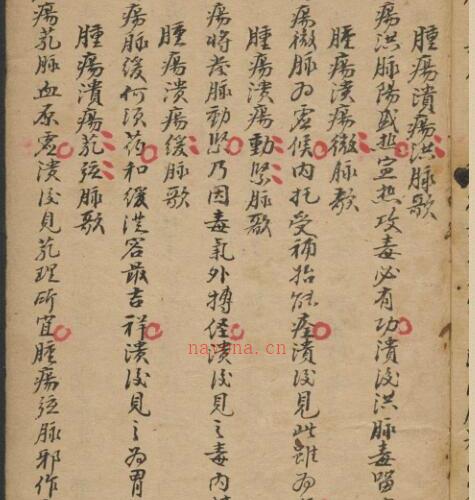 腫瘍潰瘍洪脉歌
瘍洪脉陽盛熱宣熱攻毒必有功潰後洪脉毒留
腫瘍潰瘍微脉歌
瘍微脉為虛候内托受補抬餘痊潰後見此雖为
腫瘍潰瘍動緊脉歌
瘍將發脉動緊乃因毒氣外摶侄潰後見之毒内
腫瘍潰瘍緩脉歌
瘍脉緩何須药和緩洪容最吉祥潰後見之为胃
腫瘍潰瘍芤弦脉歌
瘍芤脉血原虛潰後見芤理所宜腫瘍弦脉邪作
nayona.cn